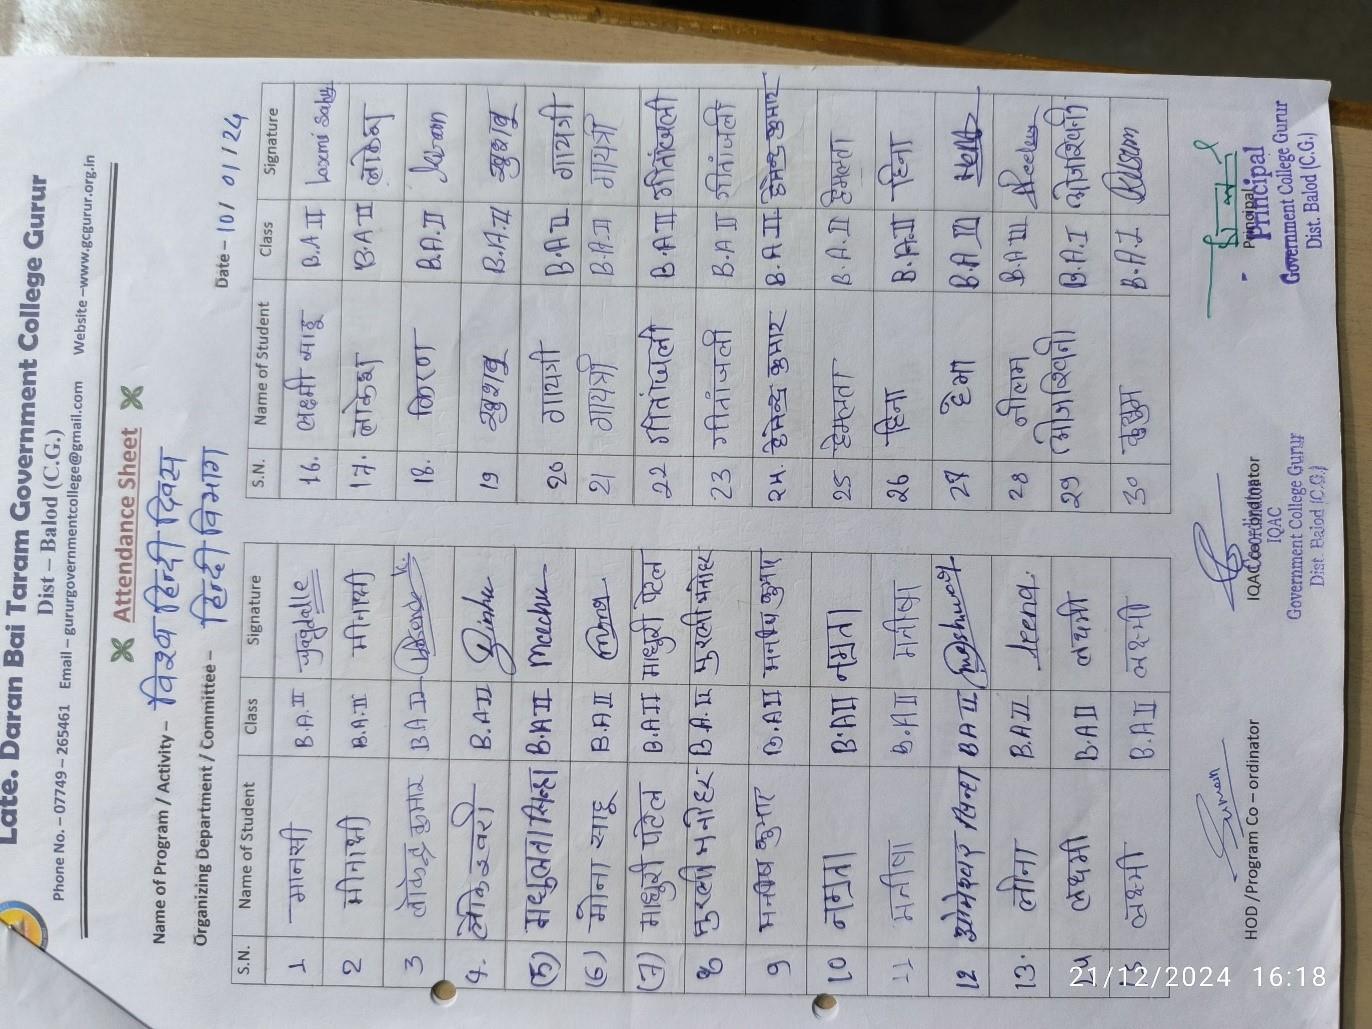 Late. Daran Bai Taram Government College Gurur
Dist – Balod (C.G.)
Phone No. – 07749 – 265461 Email – gururgovernmentcollege@gmail.com Website –www.gcgurur.org.in
Attendance Sheet
Name of Program / Activity – विश्व हिन्दी दिवस
Organizing Department / Committee – हिन्दी विभाग Date – 10/01/24
S.N. Name of Student Class Signature
1 मानसी B.A.II
2 मीनाक्षी B.A.II मीनाक्षी
3 लोकेन्द्र कुमार B.A II
4. लोकेश्वरी B.A II
(5) मधुलता सिन्हा B.A II Madhu
(6) मोना साहू B.A II Mona
(7) माधुरी पटेल B.A II माधुरी पटेल
8 मुरली मनोहर B.A. II मुरली मनोहर
9 मनीष कुमार B.A II मनीष कुमार
10 नम्रता B.A II नम्रता
11 मनीषा B.A II मनीषा
12 B.A II
13. लीना B.A.II leena
14 लक्ष्मी B.A II लक्ष्मी
15 लक्ष्मी B.A II लक्ष्मी
S.N. Name of Student Class Signature
16. लक्ष्मी साहू B.A II Laxmi Sahu
17. लोकेश B.A II लोकेश
18. किरण B.A.II Kiran
19 खुशबू B.A.II खुशबू
20 गायत्री B.A II गायत्री
21 गायत्री B.A.II गायत्री
22 गीतांजली B.A II गीतांजली
23 गीतांजली B.A II गीतांजली
24. हेमेन्द्र कुमार B.A II हेमेन्द्र कुमार
25 हेमलता B.A.II हेमलता
26 हिना B.A.II हिना
27 हेमा B.A III
28 नीलम B.A III Neelam
29 B.A.I
30 कुसुम B.A I Kusum
Suman
HOD / Program Co – ordinator IQAC Coordinator Principal
IQAC Coordinator
IQAC
Government College Gurur
Dist. Balod (C.G.)
Principal
Government College Gurur
Dist. Balod (C.G.)
21/12/2024 16:18